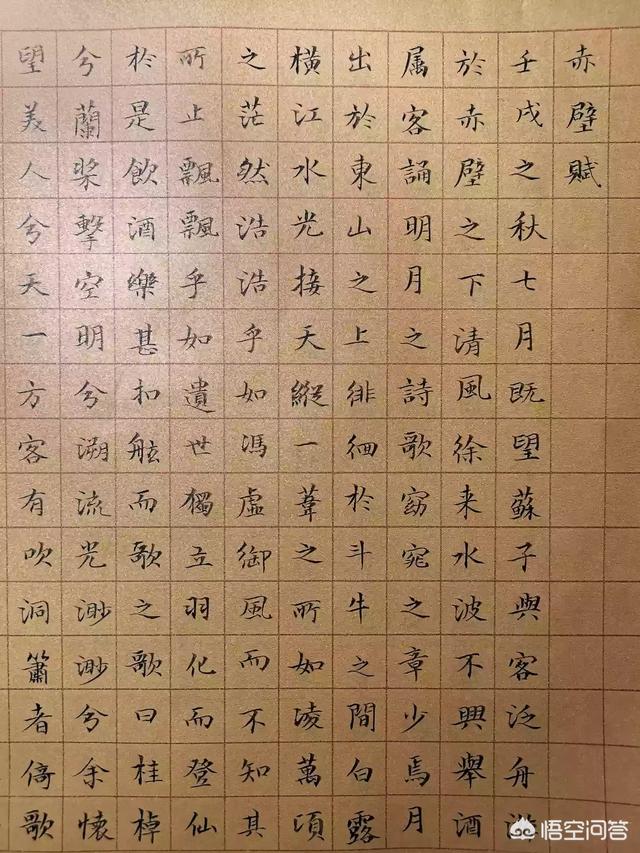 赤壁賦
壬戌之秋七月既望蘇子與客泛舟游
於赤壁之下清風徐来水波不興舉酒
属客誦明月之詩歌窈窕之章少焉月
出於東山之上徘徊於斗牛之間白露
橫江水光接天縱一葦之所如凌萬頃
之茫然浩浩乎如馮虛御風而不知其
所止飄飄乎如遺世獨立羽化而登仙
於是飲酒樂甚扣舷而歌之歌曰桂棹
兮蘭槳擊空明兮溯流光渺渺兮余懷
望美人兮天一方客有吹洞簫者倚歌
悟空问答